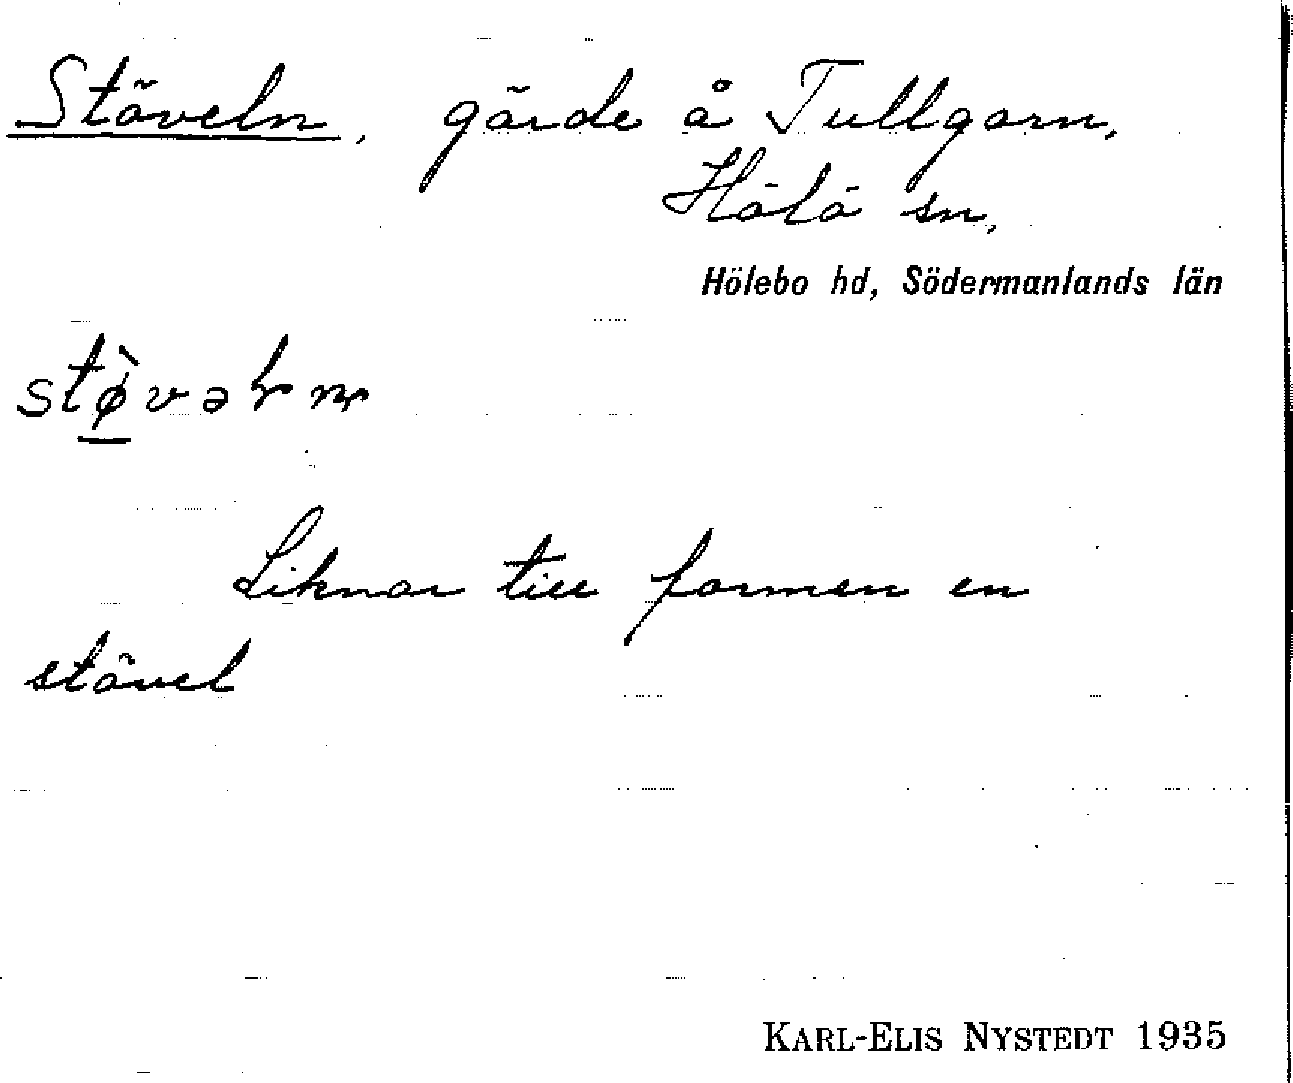 Stöveln, gärde å Tullgarn,
Hölö sn,
Hölebo hd, Södermanlands län
stø̀vəɽɳ
Liknar till formen en
stövel
KARL-ELIS NYSTEDT 1935